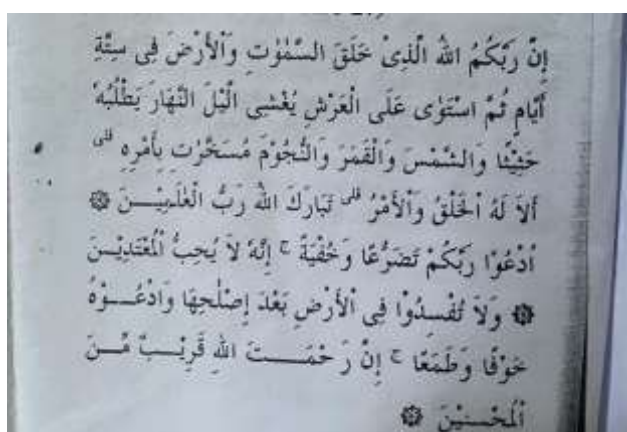 إِنَّ رَبَّكُمُ اللهُ الَّذِىْ خَلَقَ السَّمٰوٰتِ وَالْأَرْضَ فِى سِتَّةِ
أَيَّامٍ ثُمَّ اسْتَوٰى عَلَى الْعَرْشِ يُغْشِى الَّيْلَ النَّهَارَ يَطْلُبُهٗ
حَثِيْثًا وَالشَّمْسَ وَالْقَمَرَ وَالنُّجُوْمَ مُسَخَّرٰتٍ بِأَمْرِهٖ قلى
أَلاَ لَهُ الْخَلْقُ وَالْأَمْرُ قلى تَبَارَكَ اللهُ رَبُّ الْعٰلَمِيْنَ ۞
اُدْعُوْا رَبَّكُمْ تَضَرُّعًا وَخُفْيَةً ج إِنَّهٗ لاَ يُحِبُّ الْمُعْتَدِيْنَ
۞ وَلاَ تُفْسِدُوْا فِى الْأَرْضِ بَعْدَ إِصْلٰحِهَا وَادْعُوْهُ
خَوْفًا وَطَمَعًا ج إِنَّ رَحْمَتَ اللهِ قَرِيْبٌ مِّنَ
الْمُحْسِنِيْنَ ۞